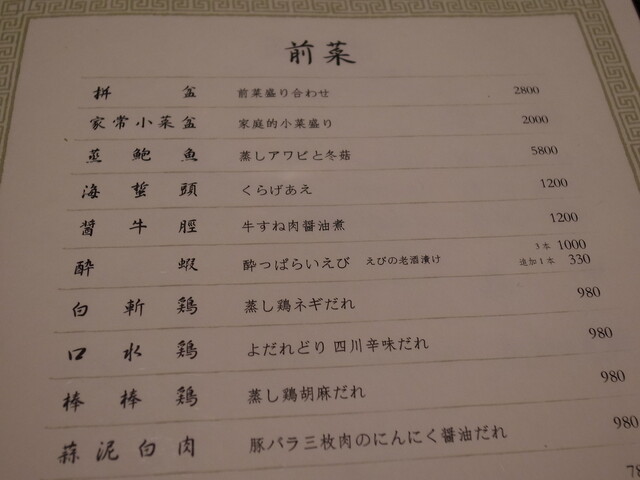 前菜
拼盆 前菜盛り合わせ 2800
家常小菜盆 家庭的小菜盛り 2000
蒸鮑魚 蒸しアワビと冬菇 5800
海蜇頭 くらげあえ 1200
醤牛脛 牛すね肉醤油煮 1200
酔蝦 酔っぱらいえび えびの老酒漬け 3本 1000
追加1本 330
白斬鶏 蒸し鶏ネギだれ 980
口水鶏 よだれどり 四川辛味だれ 980
棒棒鶏 蒸し鶏胡麻だれ 980
蒜泥白肉 豚バラ三枚肉のにんにく醤油だれ 980